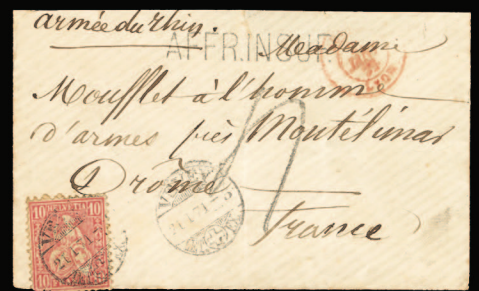 armée du rhin.
AFFR. INSUF.
Madame
Moufflet à l'homme
d'armes près Montélimar
Drôme
France
10 HELVETIA 10
10